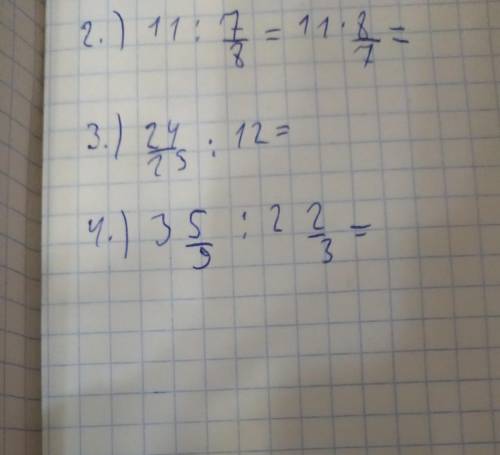 2.) 11 : 7/8 = 11 · 8/7 =
3.) 24/25 : 12 =
4.) 3 5/9 : 2 2/3 =